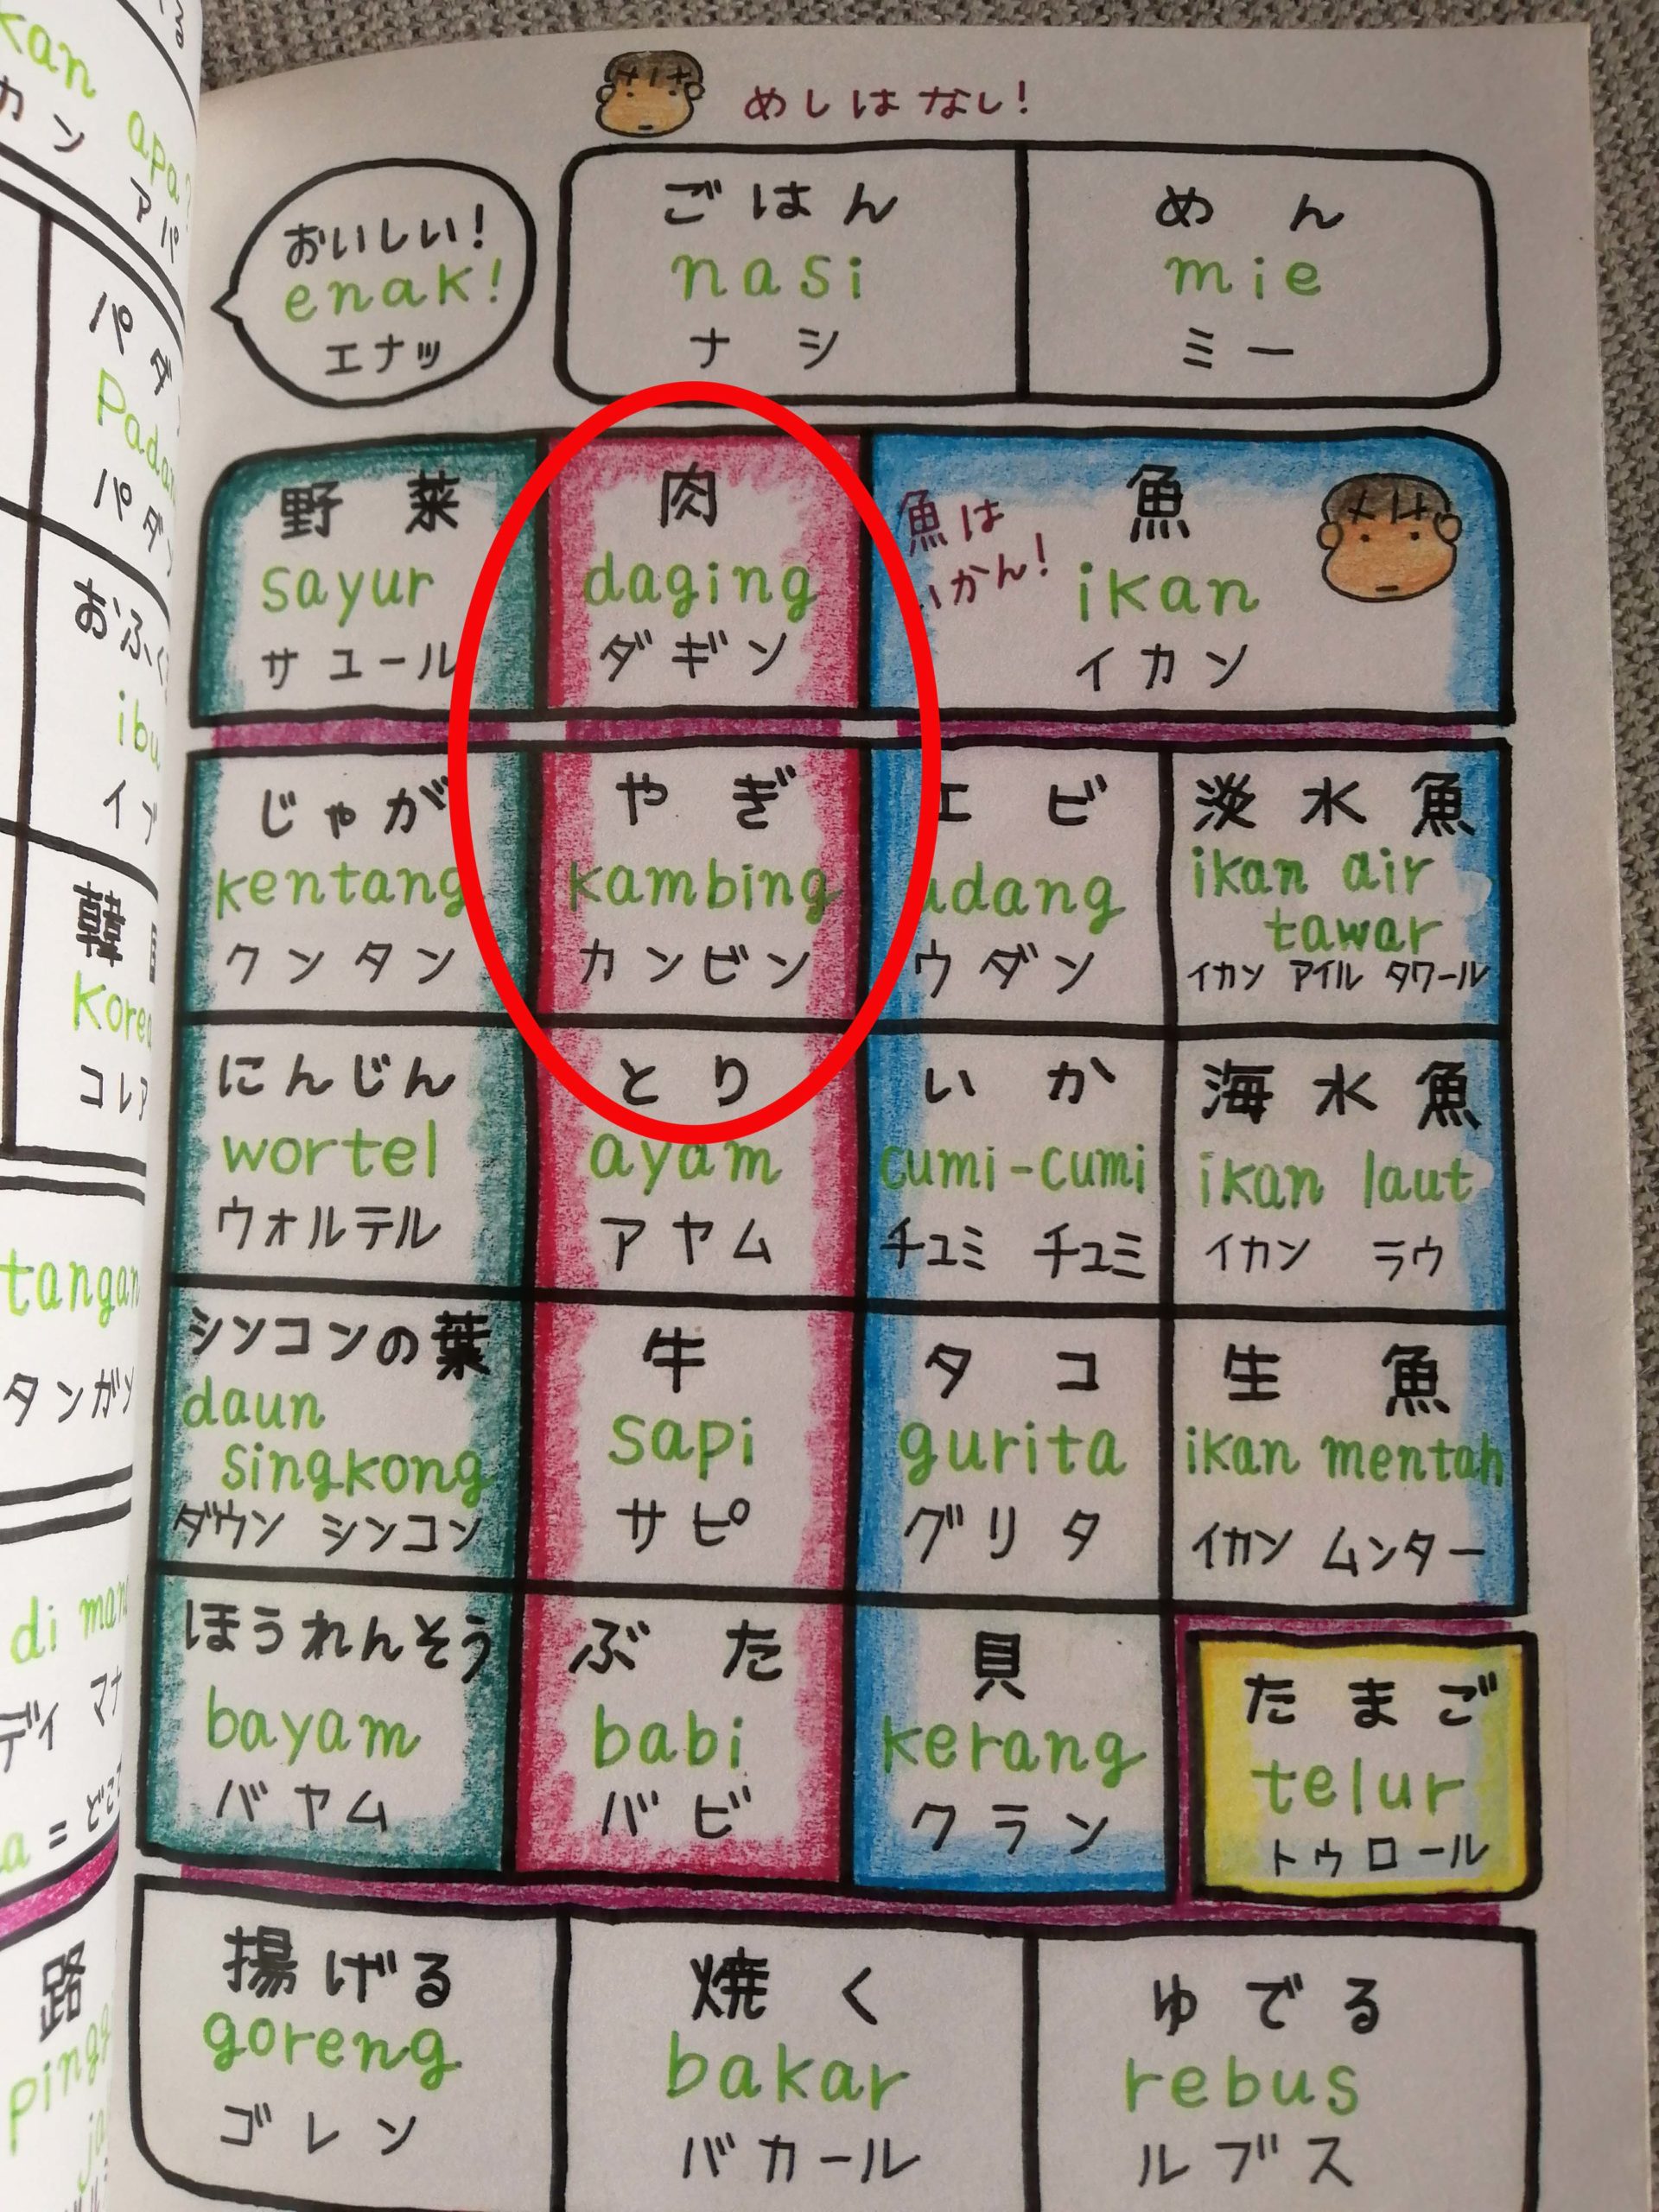 kan
カン
apa?
アパ
パダ
Padan
パダン
ibu
イブ
韓
Korea
コレア
tangan
タンガン
di mana
ディ マナ
a = どこ
路
めしはなし!
おいしい!
enak!
エナッ
ごはん
nasi
ナシ
めん
mie
ミー
野菜
sayur
サユール
肉
daging
ダギン
魚は
いかん!
魚
ikan
イカン
じゃが
kentang
クンタン
やぎ
kambing
カンビン
エビ
udang
ウダン
淡水魚
ikan air
tawar
イカン アイル タワール
にんじん
wortel
ウォルテル
とり
ayam
アヤム
いか
cumi-cumi
チュミ チュミ
海水魚
ikan laut
イカン ラウ
シンコンの葉
daun
singkong
ダウン シンコン
牛
sapi
サピ
タコ
gurita
グリタ
生魚
ikan mentah
イカン ムンター
ほうれんそう
bayam
バヤム
ぶた
babi
バビ
貝
kerang
クラン
たまご
telur
トゥロール
揚げる
goreng
ゴレン
焼く
bakar
バカール
ゆでる
rebus
ルブス